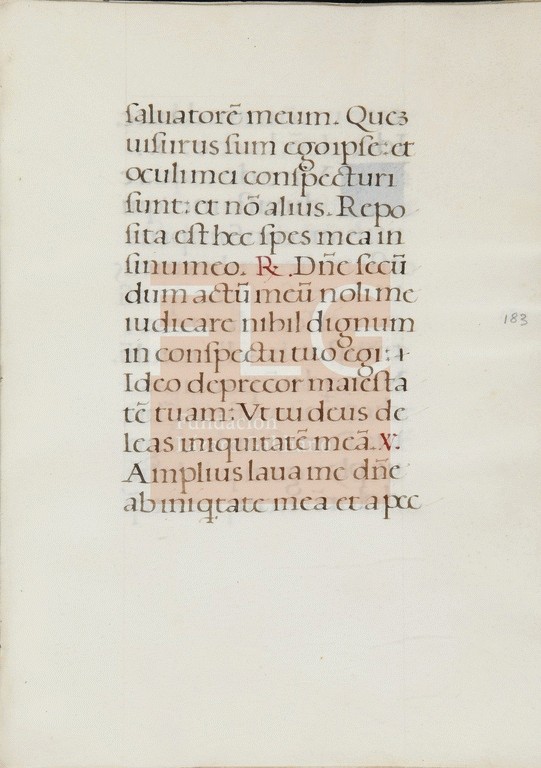 saluatorē meum. Quez
uisurus sum ego ipse: et
oculi mei conspecturi
sunt: et nō alius. Repo
sita est hec spes mea in
sinu meo. R. Dñe secū
dum actū meū noli me
iudicare nihil dignum
in conspectu tuo egi: i
Ideo deprecor maiesta
tē tuam: Vt tu deus de
leas iniquitatē meā. V.
Amplius laua me dñe
ab iniqtate mea et a pec
183
FLG
Fundación